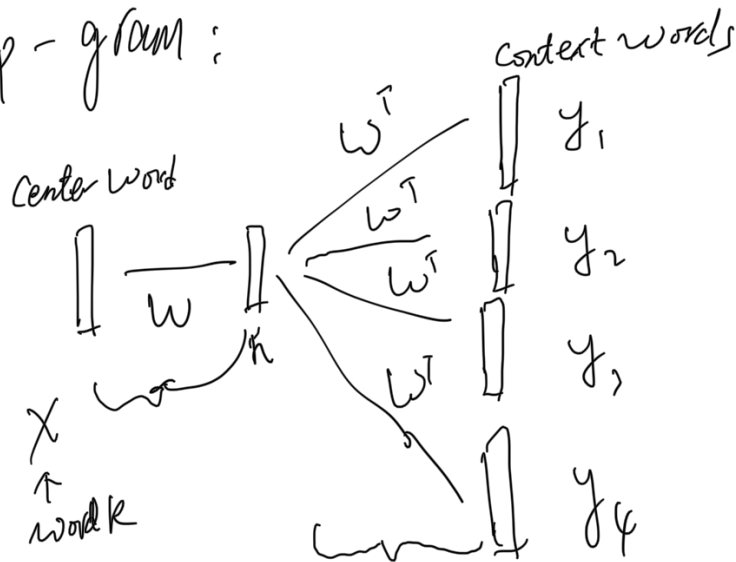 p-gram:
context words
center word
W
h
Wᵀ
Wᵀ
Wᵀ
Wᵀ
y₁
y₂
y₃
y₄
X
↑
word k